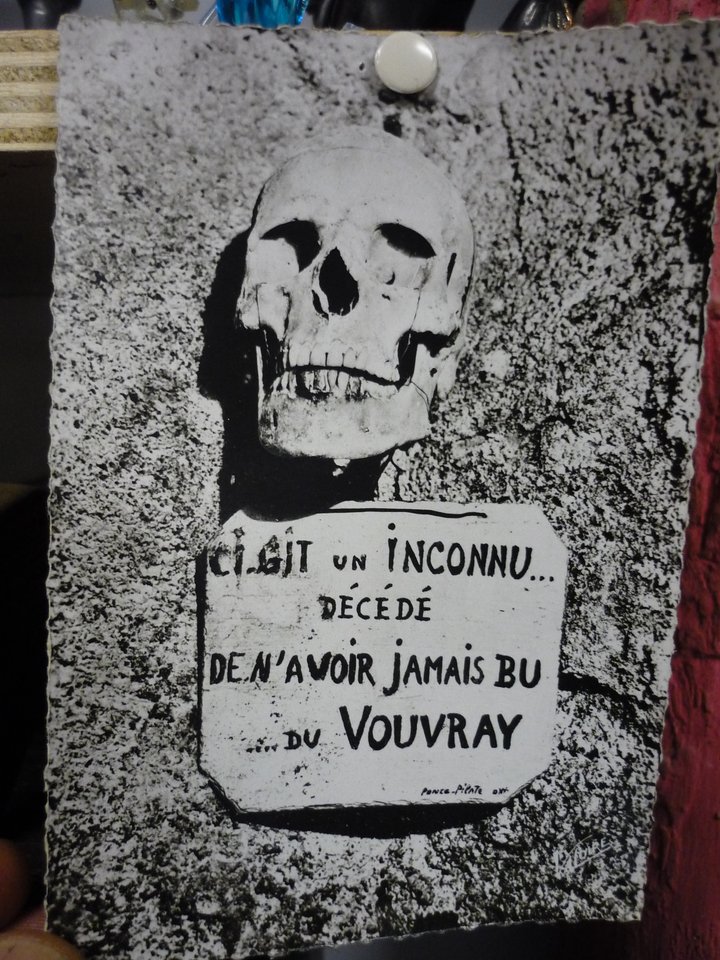 CI-GÎT UN INCONNU...
DÉCÉDÉ
DE N'AVOIR JAMAIS BU
.... DU VOUVRAY
PONCE-PILATE